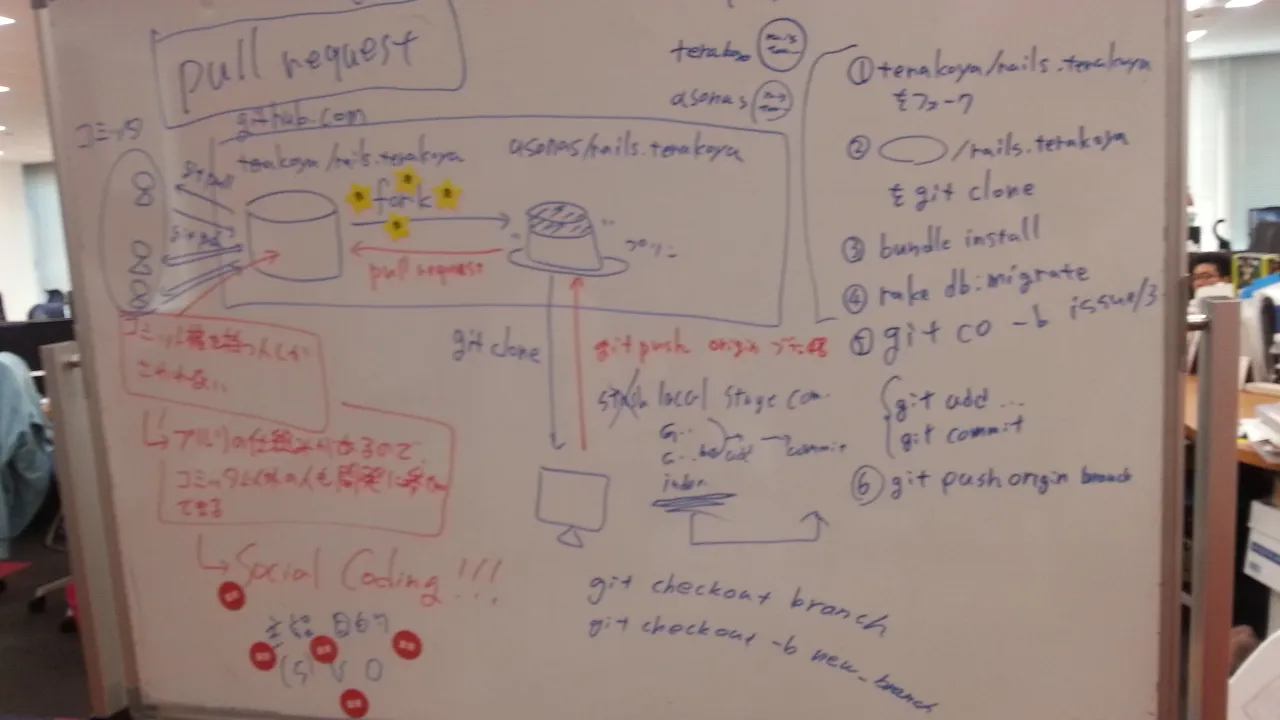 pull request
github.com
コミッタ
terakoya/rails.terakoya
asonas/rails.terakoya
git pull
git pull
fork
pull request
コミット権を持つ人しか
さわれない
↳プルリの仕組みがあるので、
コミッタ以外の人も開発に参加
できる
↳Social Coding!!!
git clone
git push origin
local stage com
add → commit
index
git checkout branch
git checkout -b new_branch
asonas
① terakoya/rails.terakoya
をフォーク
② /rails.terakoya
を git clone
③ bundle install
④ rake db:migrate
⑤ git co -b issue/3
git add ...
git commit
⑥ git push origin branch